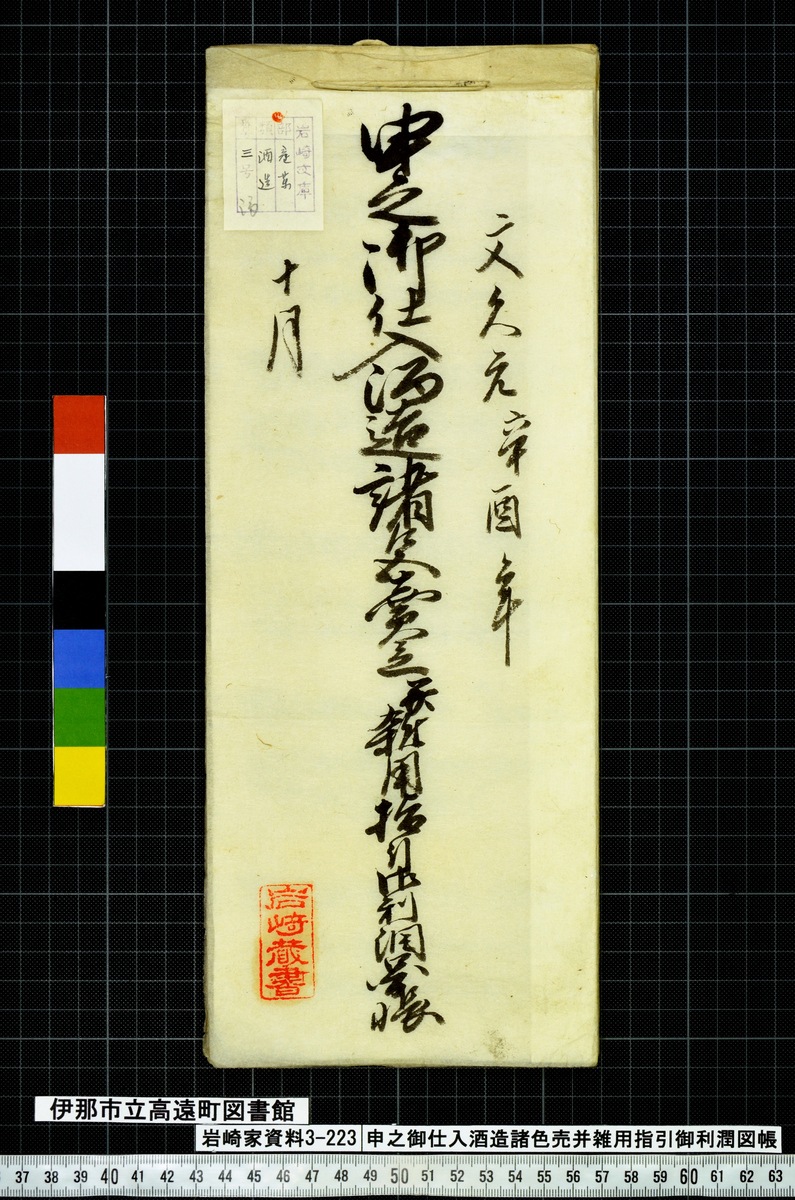 文久元辛酉年
申之御仕入酒造諸色賣立并雑用指引御利潤帳
十月
岩崎文庫
部 産業
類 酒造
三号
岩崎蔵書
伊那市立高遠町図書館
岩崎家資料3-223 申之御仕入酒造諸色売并雑用指引御利潤図帳
37 38 39 40 41 42 43 44 45 46 47 48 49 50 51 52 53 54 55 56 57 58 59 60 61 62 63